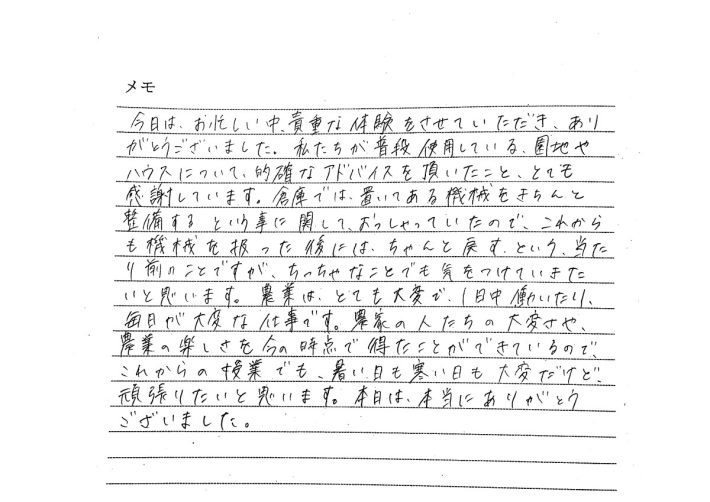 メモ
今日は、お忙しい中、貴重な体験をさせていただき、あり
がとうございました。私たちが普段使用している、圃地や
ハウスについて、的確なアドバイスを頂いたこと、とても
感謝しています。倉庫では、置いてある機械をきちんと
整備するという事に関して、おっしゃっていたので、これから
も機械を扱った後には、ちゃんと戻す、という、当た
り前のことですが、ちっちゃなことでも気をつけていきた
いと思います。農業は、とても大変で、1日中働いたり、
毎日が大変な仕事です。農家の人たちの大変さや、
農業の楽しさを今の時点で得たことができているので、
これからの授業でも、暑い日も寒い日も大変だけど、
頑張りたいと思います。本日は、本当にありがとう
ございました。